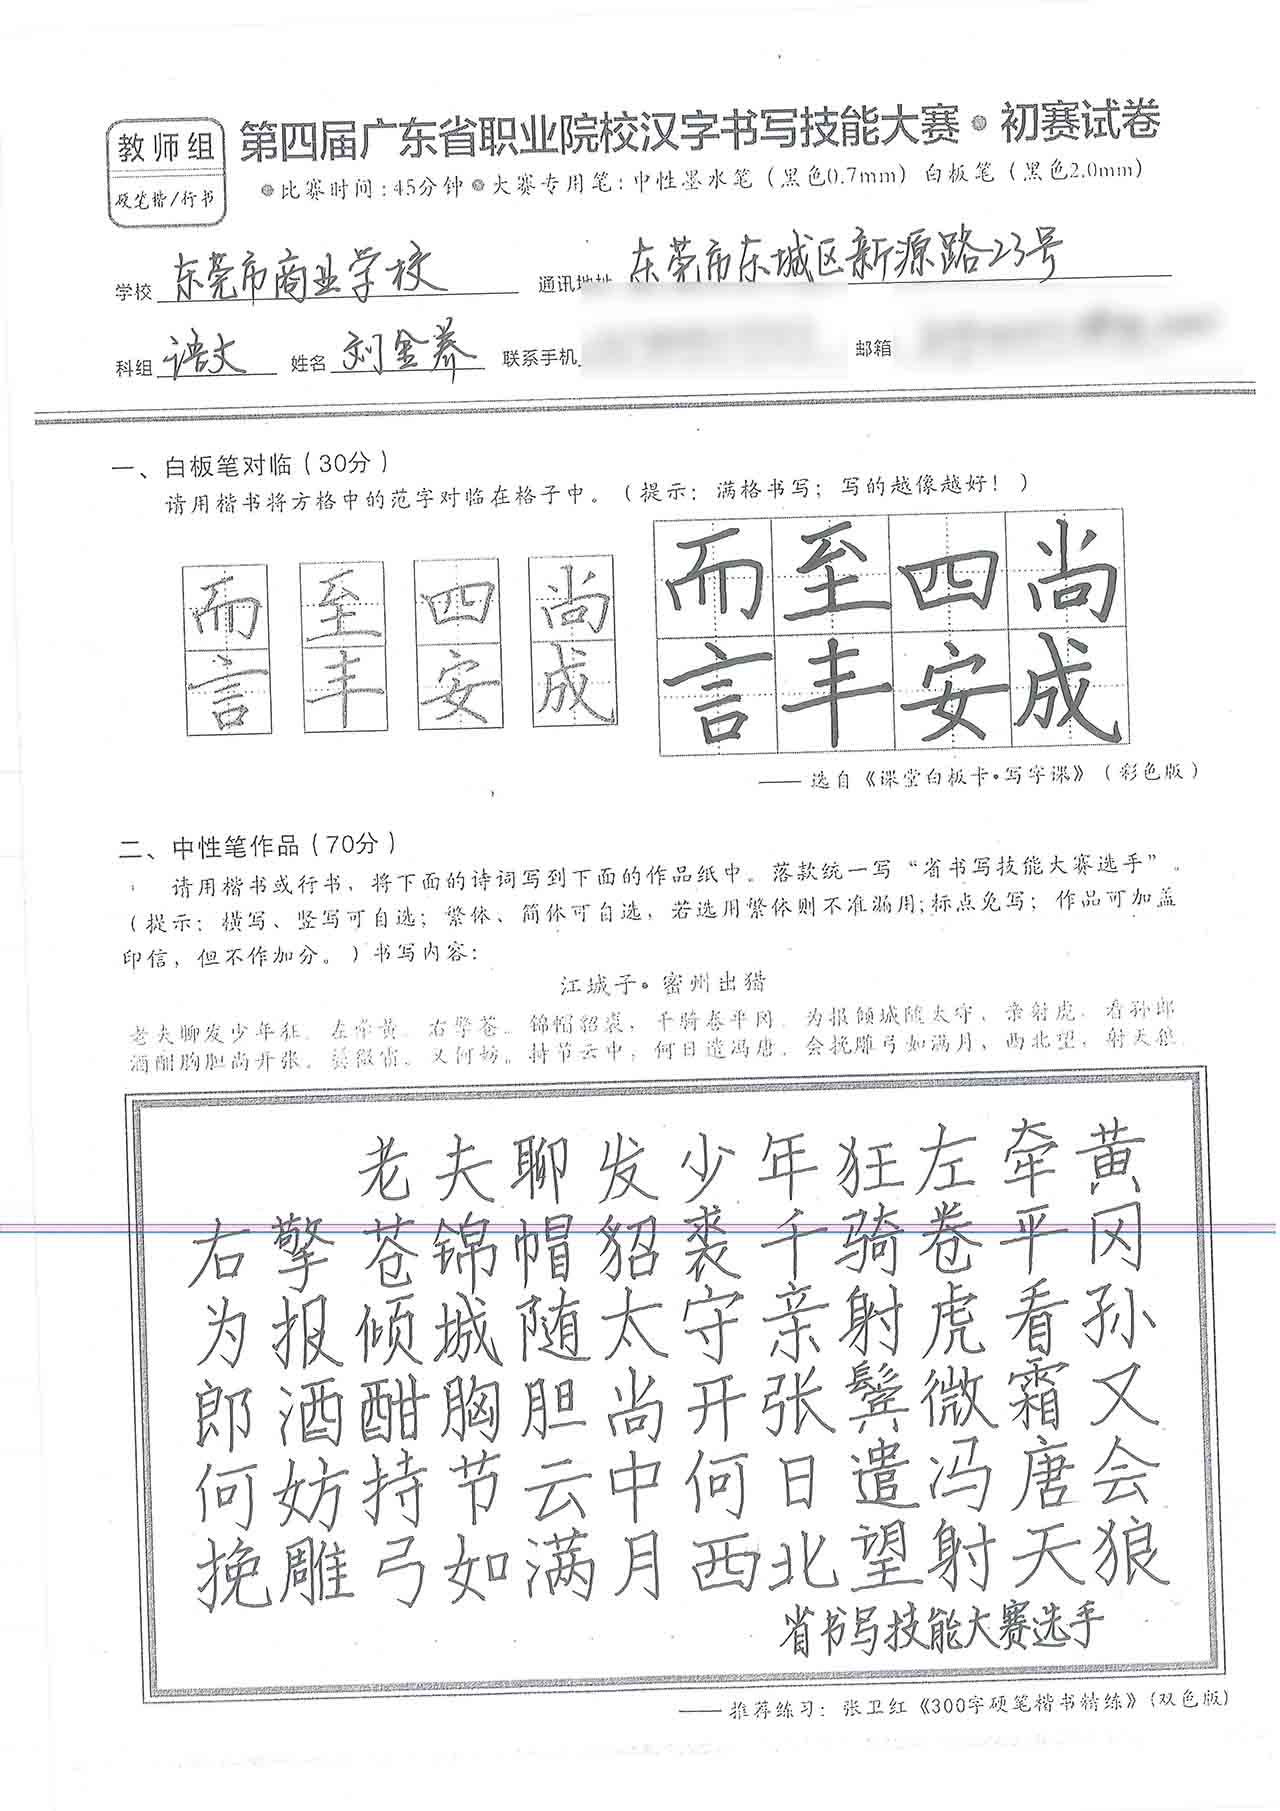 教师组
硬笔楷/行书
第四届广东省职业院校汉字书写技能大赛·初赛试卷
●比赛时间:45分钟●大赛专用笔:中性墨水笔(黑色0.7mm)白板笔(黑色2.0mm)
学校 东莞市商业学校 通讯地址 东莞市东城区新源路23号
科组 语文 姓名 刘金养 联系手机 邮箱
一、白板笔对临(30分)
请用楷书将方格中的范字对临在格子中。(提示:满格书写;写的越像越好!)
而 至 四 尚 而 至 四 尚
言 丰 安 成 言 丰 安 成
——选自《课堂白板卡·写字课》(彩色版)
二、中性笔作品(70分)
请用楷书或行书,将下面的诗词写到下面的作品纸中。落款统一写“省书写技能大赛选手”。
(提示:横写、竖写可自选;繁体、简体可自选,若选用繁体则不准漏用;标点免写;作品可加盖
印信,但不作加分。)书写内容:
江城子·密州出猎
老夫聊发少年狂,左牵黄,右擎苍。锦帽貂裘,千骑卷平冈。为报倾城随太守,亲射虎,看孙郎
酒酣胸胆尚开张。鬓微霜,又何妨。持节云中,何日遣冯唐。会挽雕弓如满月,西北望,射天狼
老夫聊发少年狂左牵黄
右擎苍锦帽貂裘千骑卷平冈
为报倾城随太守亲射虎看孙
郎酒酣胸胆尚开张鬓微霜又
何妨持节云中何日遣冯唐会
挽雕弓如满月西北望射天狼
省书写技能大赛选手
——推荐练习:张卫红《300字硬笔楷书精练》(双色版)